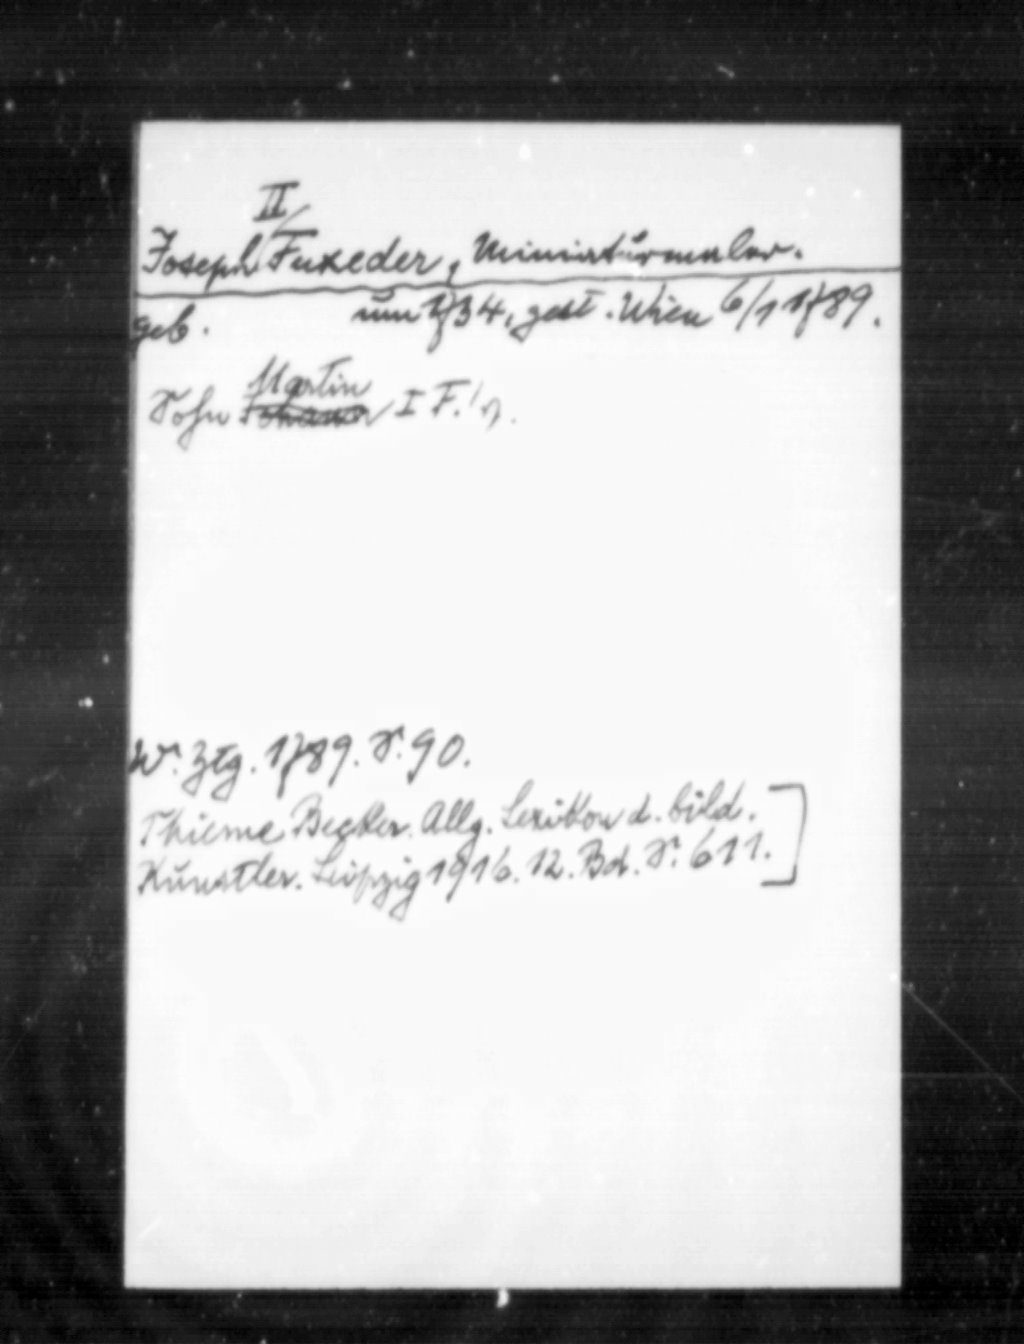 II
Joseph Fuxeder, Miniaturmaler.
geb. um 1734, gest. Wien 6/1 1789.
Martin
Sohn Johann I F.!
Wr. Ztg. 1789. S. 90.
Thieme Becker. Allg. Lexikon d. bild.
Künstler. Leipzig 1916. 12. Bd. S. 611.